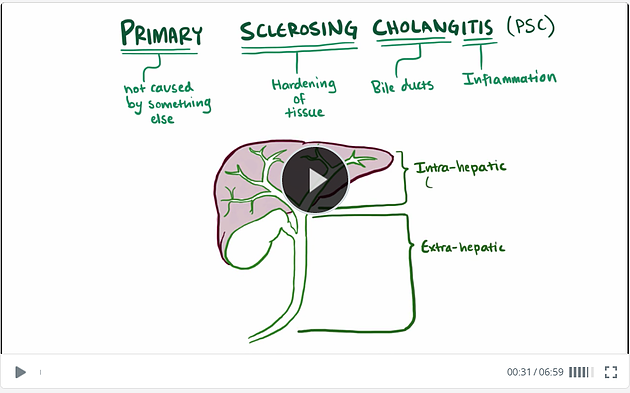 PRIMARY SCLEROSING CHOLANGITIS (PSC)
not caused
by something
else
Hardening
of
tissue
Bile ducts
Inflammation
Intra-hepatic
(
Extra-hepatic
00:31 / 06:59